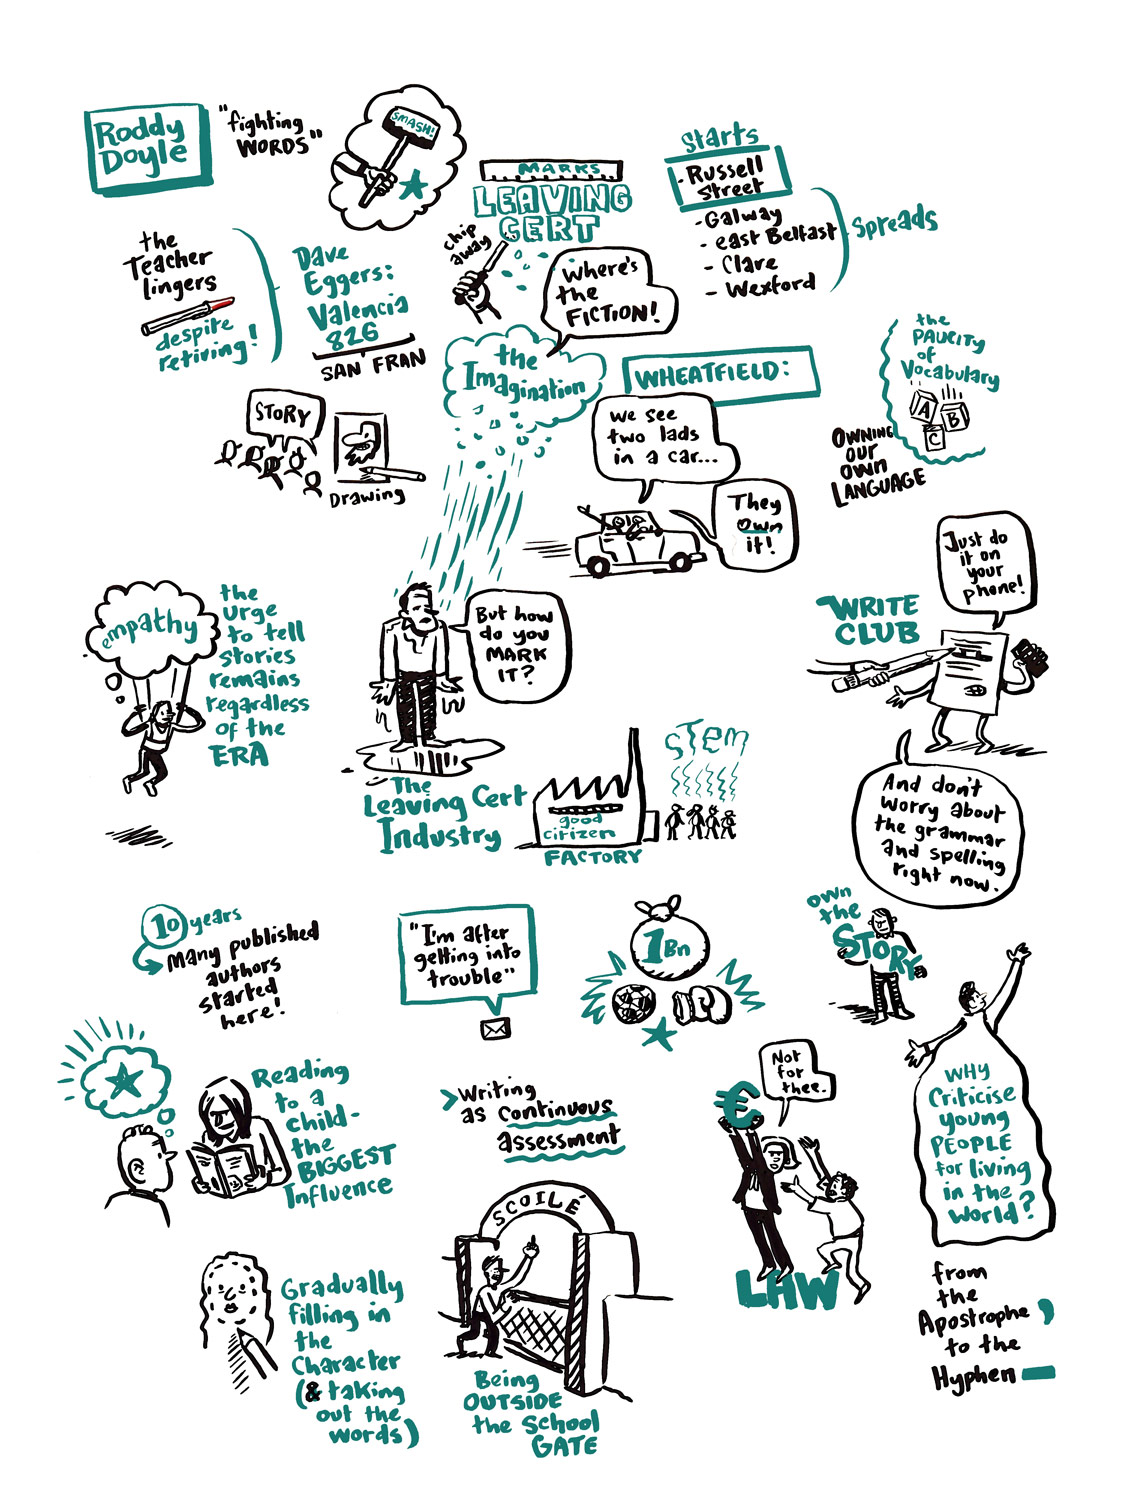 Roddy
Doyle
"fighting
WORDS"
SMASH!
MARKS
LEAVING
CERT
chip
away
Where's
the
FICTION!
Starts
- Russell
Street
- Galway
- east Belfast
- Clare
- Wexford
Spreads
the
Teacher
lingers
despite
retiring!
Dave
Eggers:
Valencia
826
SAN FRAN
the
Imagination
WHEATFIELD:
We see
two lads
in a car...
They
own
it!
the
PAUCITY
of
Vocabulary
A
B
C
OWNING
OUR
OWN
LANGUAGE
STORY
Drawing
empathy
the
urge
to tell
stories
remains
regardless
of the
ERA
But how
do you
MARK
IT?
Just do
it on
your
phone!
WRITE
CLUB
And don't
worry about
the grammar
and spelling
right now.
The
Leaving Cert
Industry
good
citizen
FACTORY
STEM
10 years
Many published
authors
started
here!
"I'm after
getting into
trouble"
1Bn
own
the
STORY
WHY
Criticise
young
PEOPLE
for living
in the
world?
Reading
to a
child-
the
BIGGEST
Influence
Writing
as continuous
assessment
€
Not
for
thee.
LAW
SCOILÉ
Being
OUTSIDE
the School
GATE
Gradually
filling in
the
Character
(& taking
out the
words)
from
the
Apostrophe ,
to the
Hyphen -